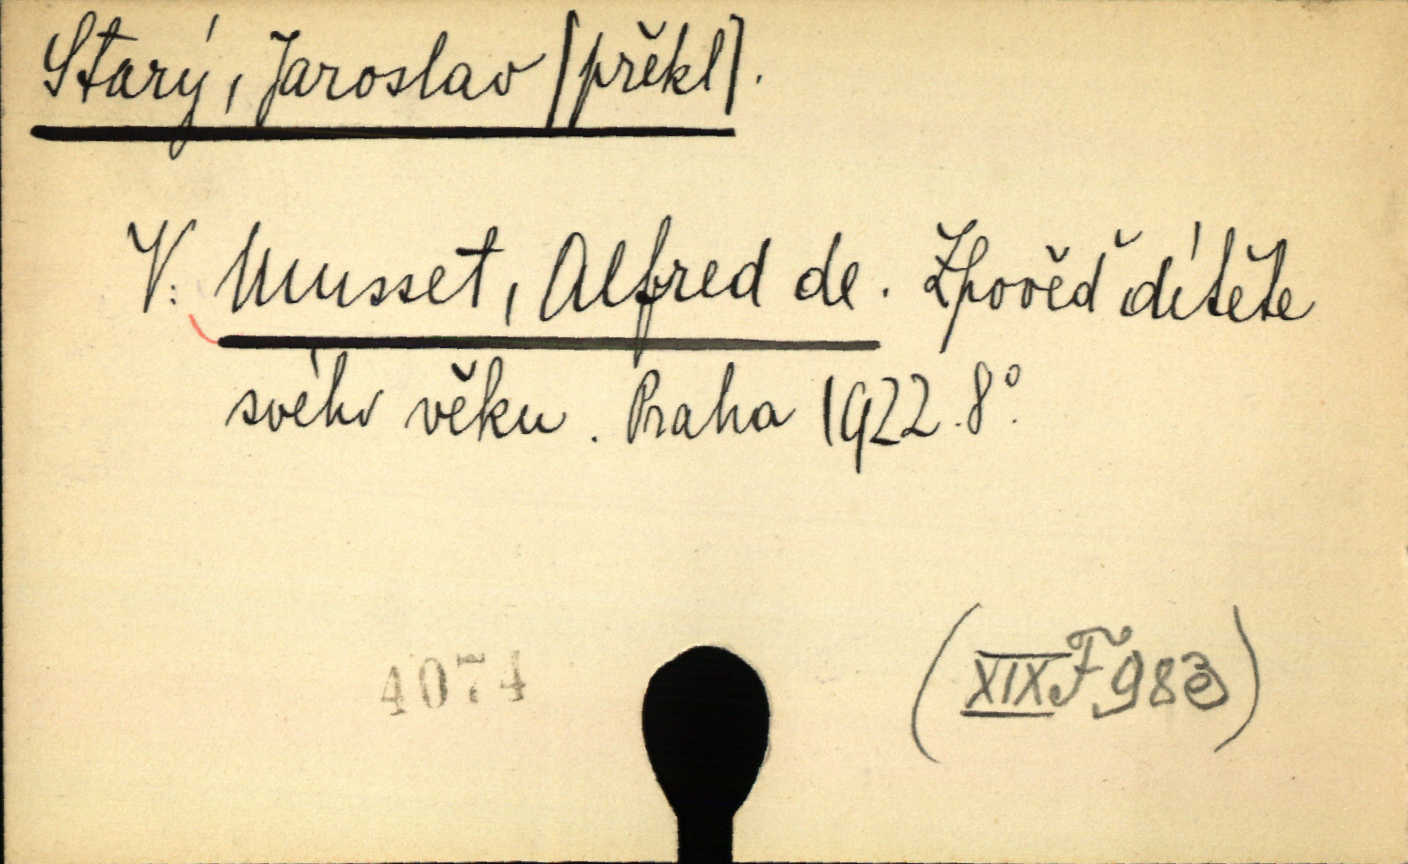 Starý, Jaroslav [překl].
V: Musset, Alfred de. Zpověď dítěte
svého věku. Praha 1922. 8°.
4074
(XIX F 983)